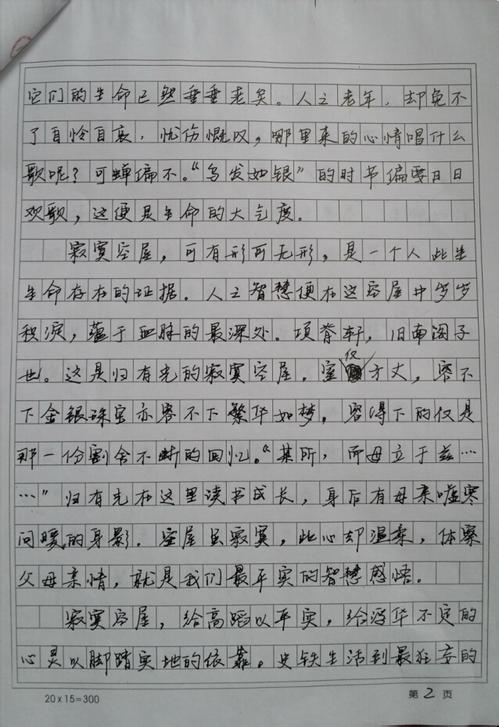 它们的生命已然垂垂老矣。人之老年，却免不
了自怜自哀，忧伤慨叹，哪里来的心情唱什么
歌呢？可蝉偏不。“乌发如银”的时节偏要日日
欢歌，这便是生命的大气度。
寂寞空屋，可有形可无形，是一个人此生
生命存在的证据。人之智慧便在这空屋中岁岁
积淀，蕴于血脉的最深处。项脊轩，旧南阁子
也。这是归有光的寂寞空屋。室仅方丈，容不
下金银珠宝亦容不下繁华如梦，容得下的仅是
那一份割舍不断的回忆。“某所，而母立于兹……
……”归有光在这里读书成长，身后有母亲嘘寒
问暖的身影。空屋虽寂寞，此心却温柔，体察
父母亲情，就是我们最平实的智慧感悟。
寂寞空屋，给高蹈以平实，给浮华不定的
心灵以脚踏实地的依靠。史铁生活到最狂妄的
20×15=300
第2页